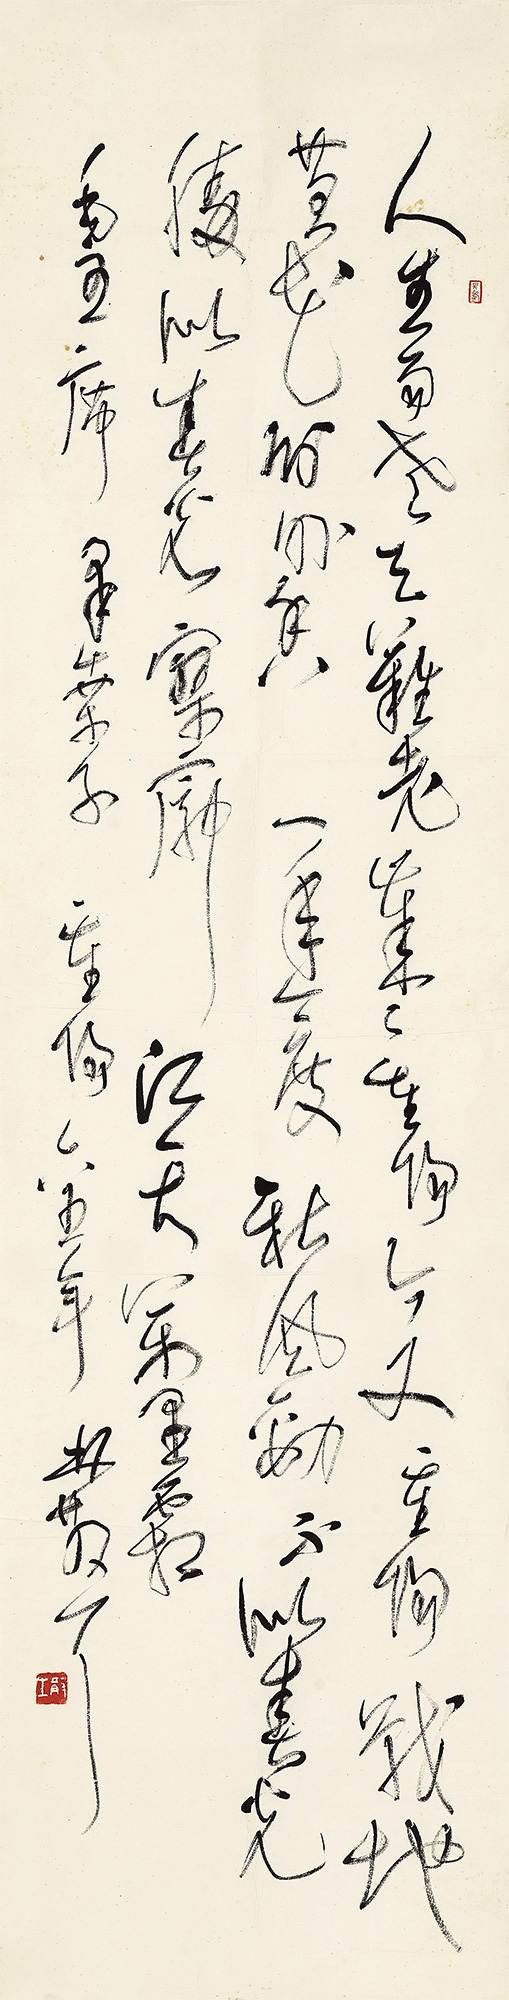 人生易老天難老歲〻重陽今又重陽戰地
黄花分外香一年一度秋風勁不似春光
勝似春光寥廓江天萬里霜
毛主席采桑子重陽六五年林散耳